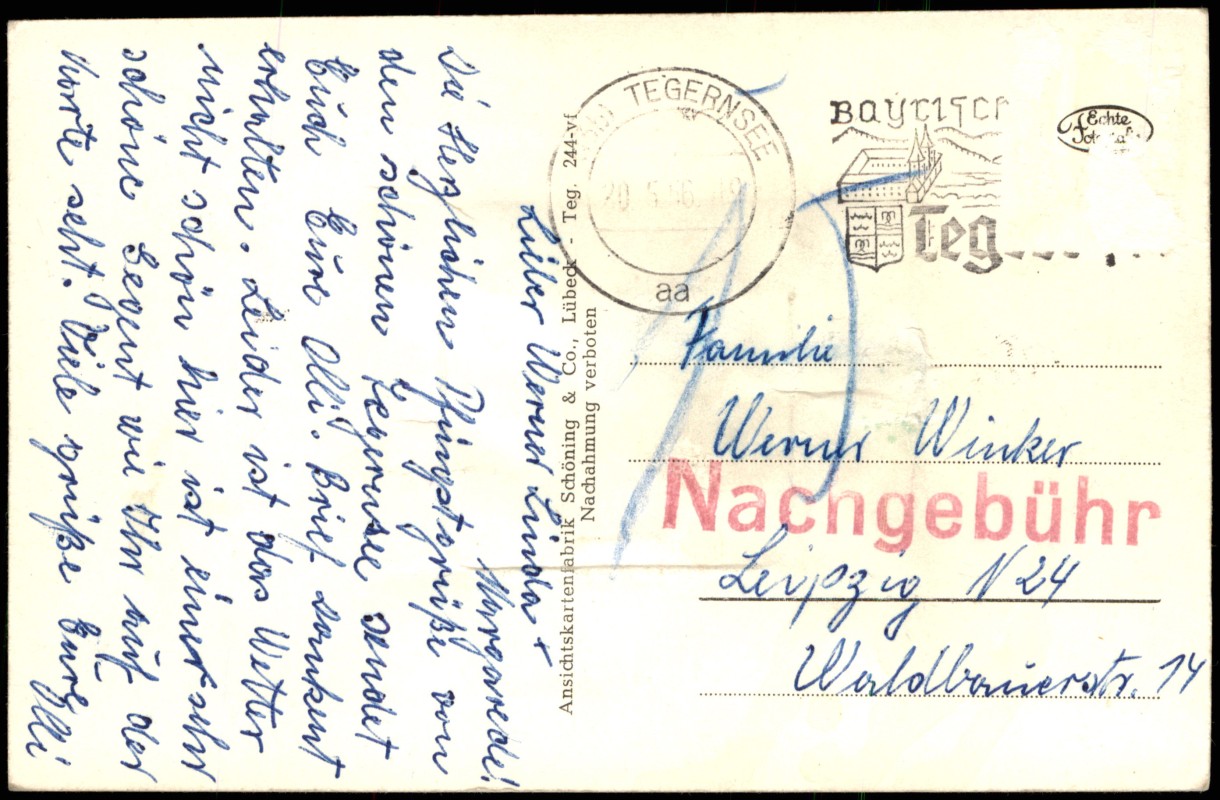 Lieber Werner Linda +
Margarede!
Die Herzlichen Pfingstgrüße von
den schönen Tegernsee sendet
Euch Eure Olli. Brief dankent
erhalten. Leider ist das Wetter
nicht schön hier ist einer sehr
schöne Gegent wie Ihr auf der
Karte seht. Viele grüße Eure
Olli
Ansichtskartenfabrik Schöning & Co., Lübeck - Teg. 244-vf
Nachahmung verboten
TEGERNSEE
20. 5. 56
aa
Bayrisch
Teg
Echte
15
Familie
Werner Winker
Nachgebühr
Leipzig N 24
Waldbauerstr. 14